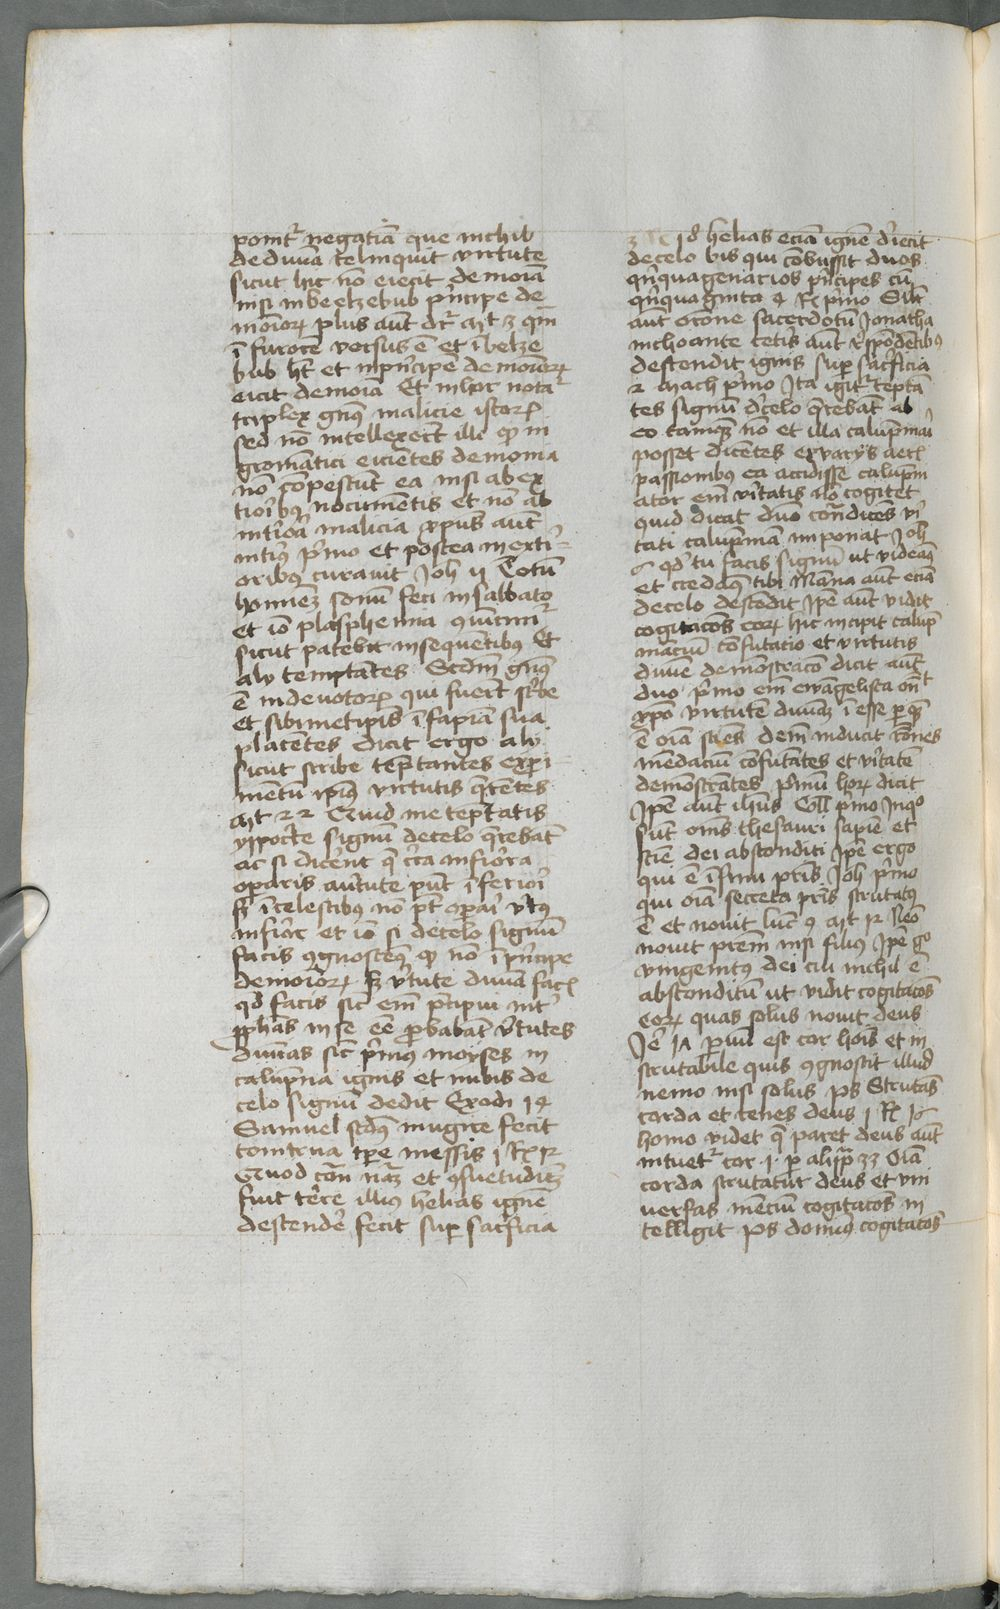 ponitr negatiua que nichil
de diuina relinquit virtute
sicut hic nō eiecit demoniā
nisi in beelzebub pͥncipe de
moniorꝝ plus aūt dr̄ mt 3 qm̄
ī furorē versus ē et ī belze
bub ht et in pͥncipe demoniorꝝ
eicit demoīa Et in hoc notar
triplex gnꝰ malicie istorꝝ
sed nō intellexert illi qꝫ ni
gromātici eicientes demonia
nō cōpescunt ea nisi ab ex
tioribꝰ nocumētis et nō ab
intiͦori malicia xpūs aūt
intiꝰ pͥmo et postea in exti
oribꝰ curauit Joh ij Totū
hominēꝫ sanū feci in sabbato
et iō plasphemia quincuī
sicut patebit in sequentibꝰ Et
alij temptātes Scdm̄ gnꝰ
ē indeuotorꝝ qui fuert scͥbe
et sibimetipis ī sapīa sua
placentes dicit ergo alij
sicut scribe temptantes experi
mentū xpiꝰ virtutis qrētes
mt 22 Quid me temptatis
ypocrite signū de celo qrebāt
ac si dicēnt qͣ circa inferiora
operaris aūtute pūt ī ferioi
sꝫ ī celestibꝰ nō pt opai vͥtꝰ
infiorꝰ et iō si de celo signū
facis ꝯgnoscemꝰ qꝫ nō ī pͥncipe
demoniorꝝ sꝫ vͥtute diuīa facꝭ
qd̄ facis sic em̄ pͥcipui intͥ
pp̄has in se eē ꝓbabāt vͥtutes
diuinas sic pͥmus moyses in
calūpnia ignis et nubis de
celo signū dedit Exodi 14
Samuel scdꝰ mugire fecit
tonitrua tpe messis 1 Rꝫ 12
Quod cōtͣ natͣꝫ et ꝯsuetudinēꝫ
fuit terre illiꝰ helias ignē
descendeͥ fecit sup sacͥficia
3 Rꝫ 18 helias eciā ignē dͥiecit
de celo bis qui cōbussit duos
qͥnquagenarios pͥncipes cū
qͥnquaginta 4 Rꝫ pͥmo Silͥr
aūt orōne sacerdotū Jonatha
inchoante ceterͥs aūt rͥspōdētibꝰ
descendit ignis sup sacͥficia
2 mach pͥmo Ita igitr temptā
tes signū dͥ celo qrebāt ab
eo tamqꝫ nō et illa calūpniari
posset dicentes ex varijs aerꝭ
passionibus ea accidisse calūpni
ator em̄ vͥitatis nō cogitet
quid dicat dūo cōtͣdicēs vͥi
tati calūpniam imponat Joh
6 qd̄ tu facis signū ut videamꝰ
et credamꝰ tibi Manna aūt eciā
de celo descendit Ipē aūt vidit
cogitacōs eorꝝ hic incipit calūp
niarum cōfutatio et virtutis
diuine demōstracō dicit aūt
duo pͥmo em̄ ewāngelista ondͭ
xpō virtutē diuināꝫ ī eē ꝑ quā
ē oīa sciēs dem̄ inducit rōnes
mendaciū cōfutātes et vͥitatē
demōstrātes pͥmū horꝝ dicit
Ipē aūt ihūs Coll pͥmo Inqͦ
sūt om̄s thesauri sapiē et
sciē dei absconditi Ipē ergo
qui ē ī sinu prͥs Joh pͥmo
qui oīa secreta prͥs scrutatꝰ
ē et nouit luc 9 mt 12 Nēo
nouit prem̄ nisi filius Ipē gͦ
vnigenitꝰ dei cui nichil ē
absconditū ut vidit cogitacōs
eorꝝ quas solus nouit deus
Jeͥ 17 prauū est cor hoīs et in
scrutabile quis ꝯgnoscit illud
nemo nisi solus ps Scrutās
corda et renes deus 1 Rꝫ 16
homo videt qͣ parēt deus aūt
intuetr cor 1 pͣ alipͣ 33 Oīa
corda scrutatur deus et vni
uersas mentiū cogitacōs in
telligit ps dominꝰ cogitacōs